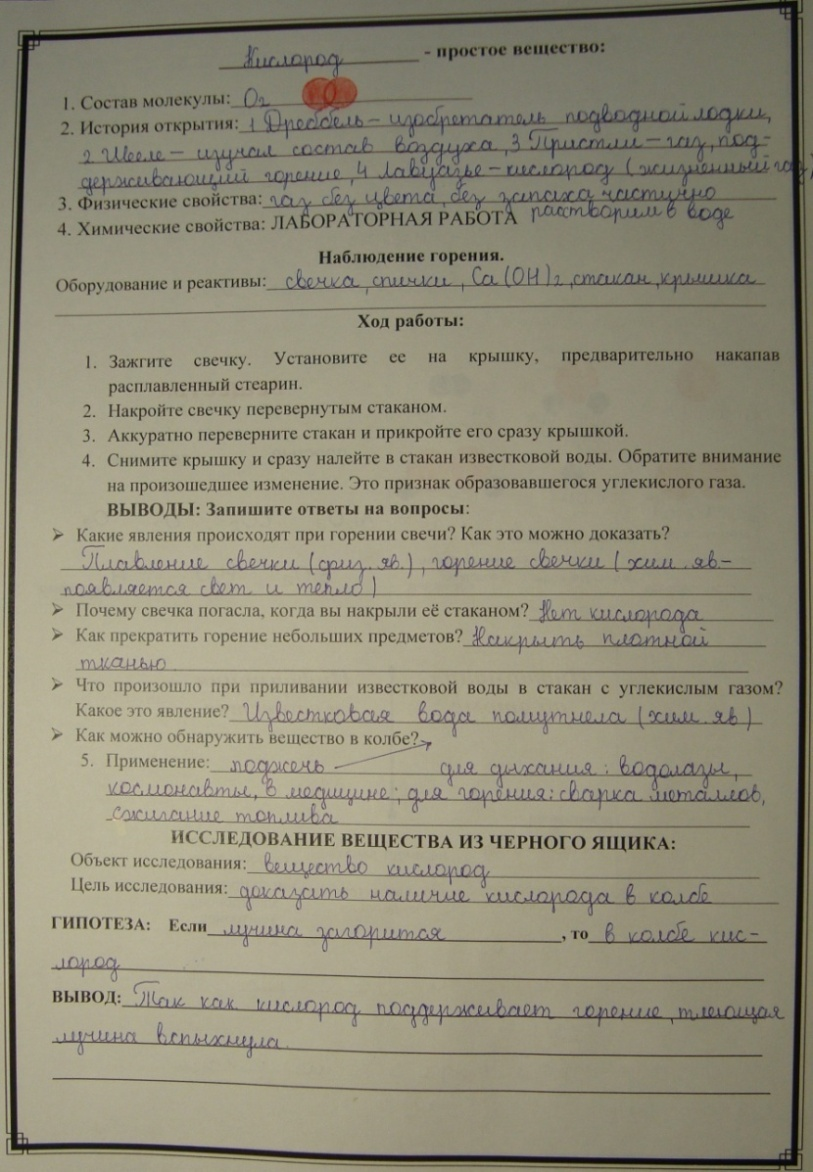 Кислород - простое вещество:
1. Состав молекулы: O2
2. История открытия: 1 Дреббель – изобретатель подводной лодки,
2 Шееле – изучал состав воздуха, 3 Пристли – газ, под-
держивающий горение, 4 Лавуазье – кислород (жизненный газ)
3. Физические свойства: газ без цвета, без запаха, частично
4. Химические свойства: ЛАБОРАТОРНАЯ РАБОТА растворим в воде
Наблюдение горения.
Оборудование и реактивы: свечка, спички, Ca(OH)2, стакан, крышка
Ход работы:
1. Зажгите свечку. Установите ее на крышку, предварительно накапав
расплавленный стеарин.
2. Накройте свечку перевернутым стаканом.
3. Аккуратно переверните стакан и прикройте его сразу крышкой.
4. Снимите крышку и сразу налейте в стакан известковой воды. Обратите внимание
на произошедшее изменение. Это признак образовавшегося углекислого газа.
ВЫВОДЫ: Запишите ответы на вопросы:
➢ Какие явления происходят при горении свечи? Как это можно доказать?
Плавление свечки (физ. яв.), горение свечки (хим. яв.-
появляется свет и тепло)
➢ Почему свечка погасла, когда вы накрыли её стаканом? Нет кислорода
➢ Как прекратить горение небольших предметов? Накрыть плотной
тканью
➢ Что произошло при приливании известковой воды в стакан с углекислым газом?
Какое это явление? Известковая вода помутнела (хим. яв)
➢ Как можно обнаружить вещество в колбе?
5. Применение: поджечь для дыхания: водолазы,
космонавты, в медицине; для горения: сварка металлов,
сжигание топлива
ИССЛЕДОВАНИЕ ВЕЩЕСТВА ИЗ ЧЕРНОГО ЯЩИКА:
Объект исследования: вещество кислород
Цель исследования: доказать наличие кислорода в колбе
ГИПОТЕЗА: Если лучина загорится, то в колбе кис-
лород
ВЫВОД: Так как кислород поддерживает горение, тлеющая
лучина вспыхнула.